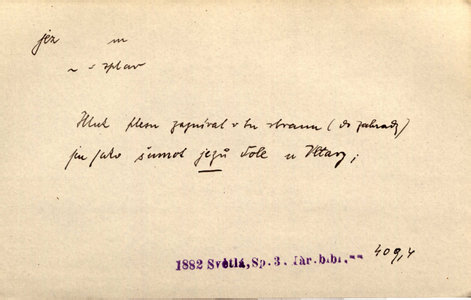 jez m
~ s splav
Hluk plesu zaznívat v tu stranu (do zahrady)
jen jako šumot jezů dole u Vltavy;
1882 Světlá, Sp. 3. Nár. bibl.
409,4